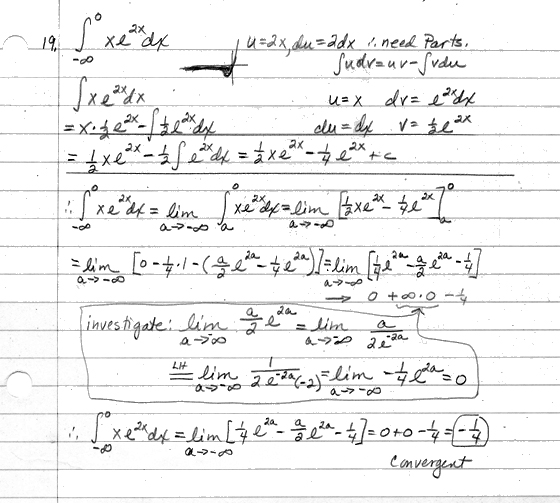 19. ∫_{-∞}^{0} xe^{2x}dx   u=2x, du=2dx ∴ need Parts.
∫udv=uv-∫vdu
∫xe^{2x}dx   u=x   dv=e^{2x}dx
=x·½e^{2x}-∫½e^{2x}dx   du=dx   v=½e^{2x}
=½xe^{2x}-½∫e^{2x}dx=½xe^{2x}-¼e^{2x}+c
∴ ∫_{-∞}^{0} xe^{2x}dx=lim_{a→-∞} ∫_{a}^{0} xe^{2x}dx=lim_{a→-∞} [½xe^{2x}-¼e^{2x}]_{a}^{0}
=lim_{a→-∞} [0-¼·1-(a/2 e^{2a}-¼e^{2a})]=lim_{a→-∞} [¼e^{2a}-a/2 e^{2a}-¼]
→ 0+∞·0-¼
investigate: lim_{a→-∞} a/2 e^{2a}=lim_{a→-∞} a/(2e^{-2a})
LH= lim_{a→-∞} 1/(2e^{-2a}(-2))=lim_{a→-∞} -¼e^{2a}=0
∴ ∫_{-∞}^{0} xe^{2x}dx=lim_{a→-∞} [¼e^{2a}-a/2 e^{2a}-¼]=0+0-¼=-¼
Convergent